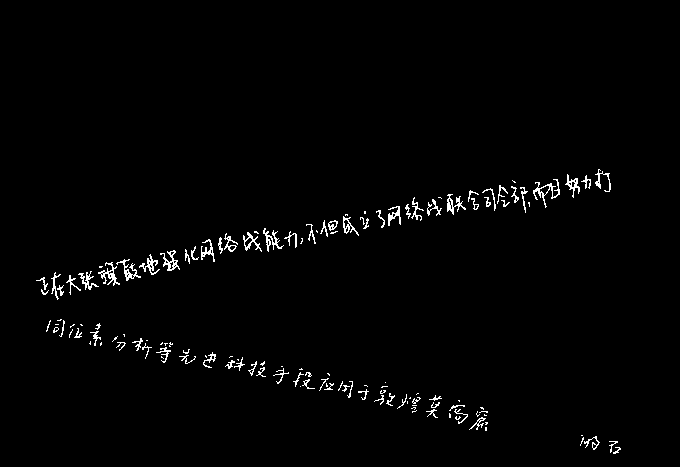 正在大张旗鼓地强化网络战能力,不但成立了网络战联合司令部,而且努力打
同位素分析等先进科技手段应用于敦煌莫高窟